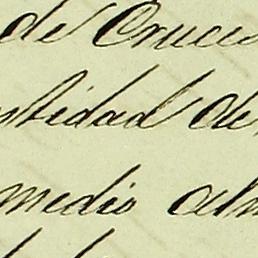 de Cruce
ntidad de
medio alm